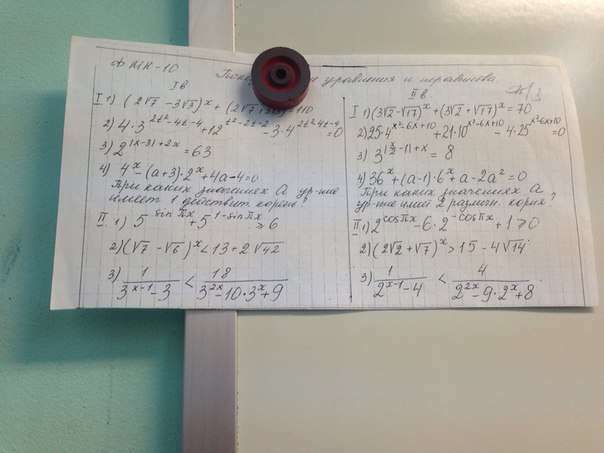 А МК-10
уравнения и неравенства.
I в
I 1) (2√7 - 3√3)ˣ + (2√7
2) 4·3^(2t²-4t-4) + 12^(t²-2t-2) - 3·4^(2t²-4t-4) = 0
3) 2^(|x-3|+2x) = 63
4) 4ˣ - (a+3)·2ˣ + 4a-4=0
При каких значениях а ур-ние
имеет 1 действит. корень?
II. 1) 5^(sin πx) + 5^(1-sin πx) ≥ 6
2) (√7 - √6)ˣ < 13 + 2√42
3) 1/(3^(x-1) - 3) < 18/(3^(2x) - 10·3ˣ + 9)
II в
I 1) (3√2 - √17)ˣ + (3√2 + √17)ˣ = 70
2) 25·4^(x²-6x+10) + 21·10^(x²-6x+10) - 4·25^(x²-6x+10) = 0
3) 3^(|x/2 - 1| + x) = 8
4) 36ˣ + (a-1)·6ˣ + a - 2a² = 0
При каких значениях а
ур-ние имеет 2 различн. корня?
II 1) 2^(cos πx) - 6·2^(-cos πx) + 1 > 0
2) (2√2 + √7)ˣ > 15 - 4√14
3) 1/(2^(x-1) - 4) < 4/(2^(2x) - 9·2ˣ + 8)